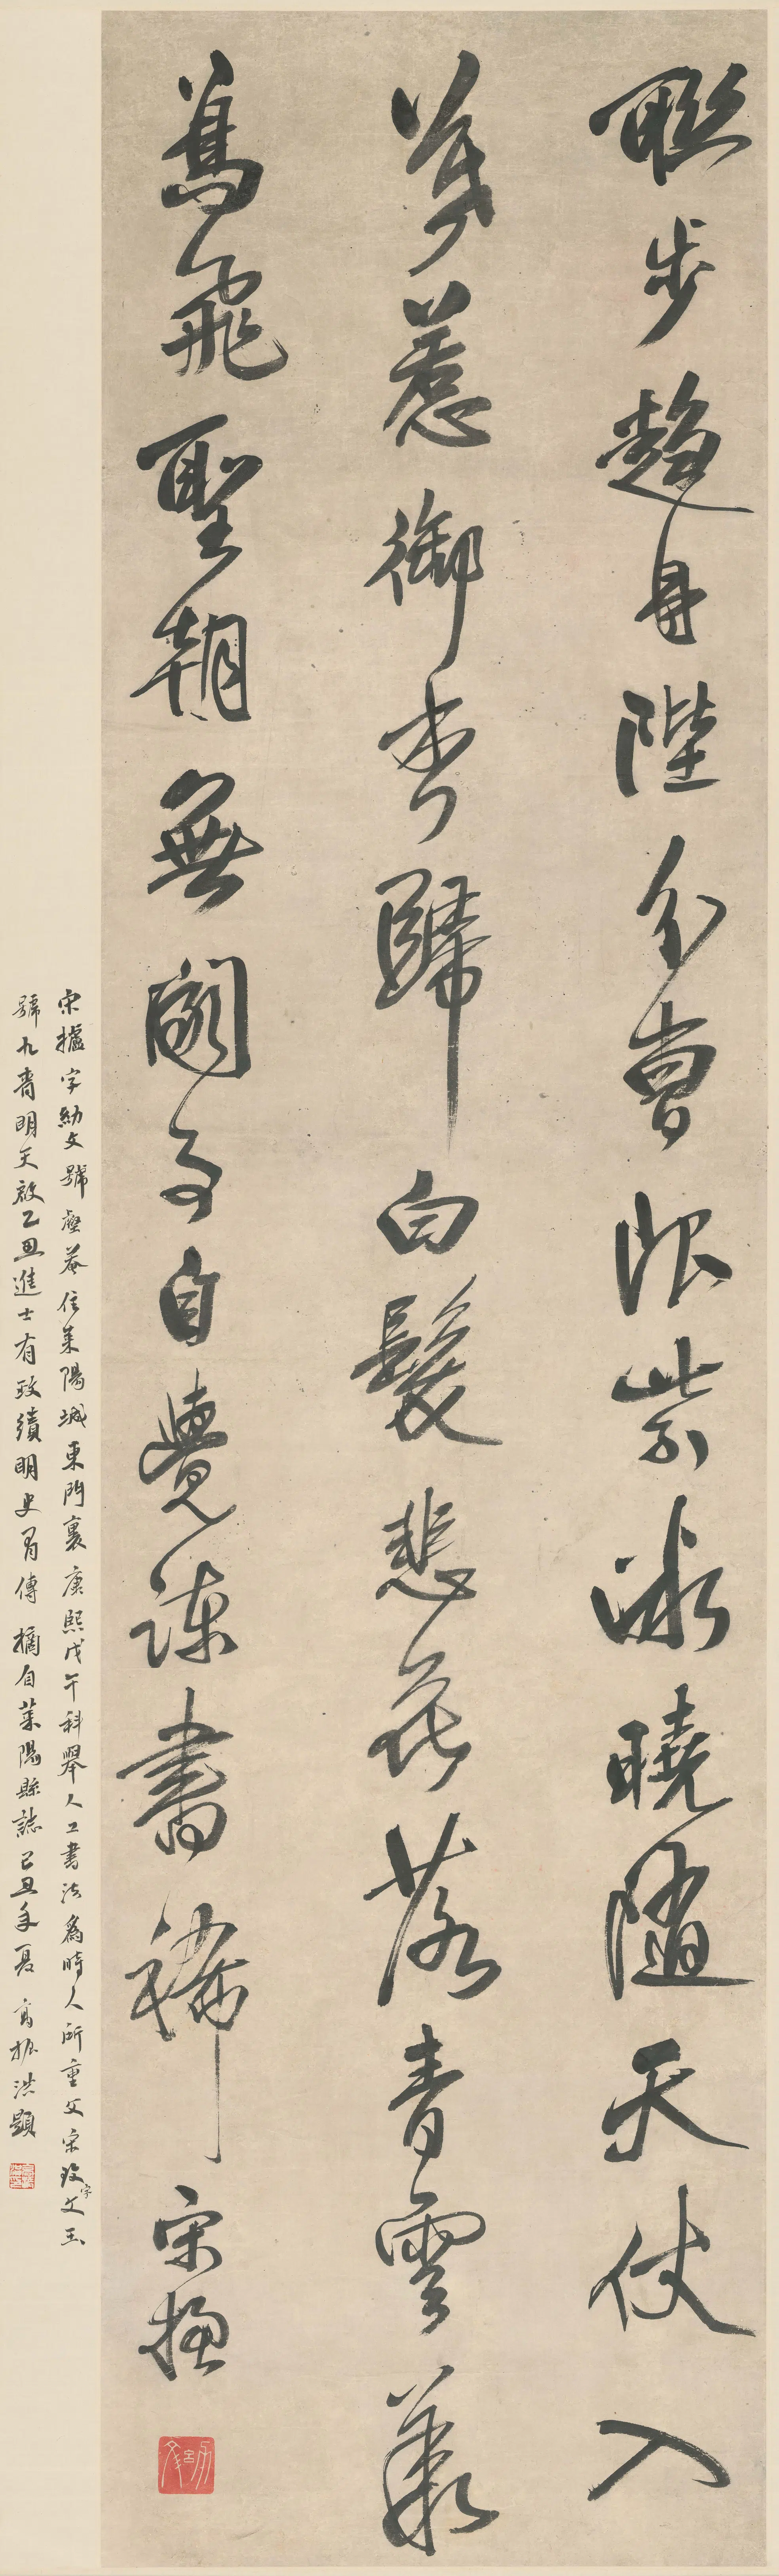 聯步趨丹陛分曹限紫微曉隨天仗入
暮惹御香歸白髮悲花落青雲羨
鳥飛聖朝無闕事自覺諫書稀 宋攄
宋攄字幼文號菴住萊陽城東門裏康熙戊午科舉人工書法為時人所重父宋玫字文玉
號九青明天啟乙丑進士有政績明史有傳 摘自萊陽縣誌 己丑年夏 高振洪題